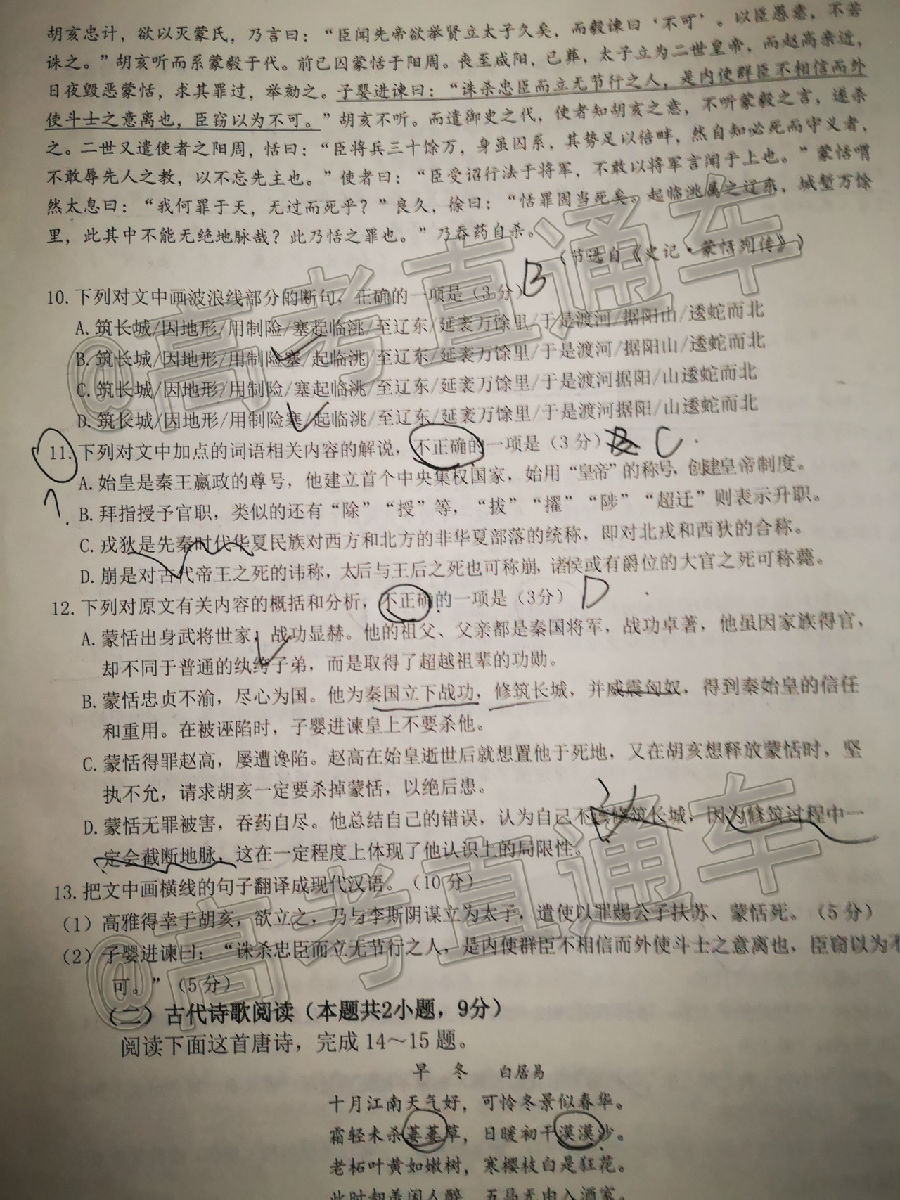 胡亥忠计，欲以灭蒙氏，乃言曰：“臣闻先帝欲举贤立太子久矣，而毅谏曰‘不可’。以臣愚意，不若
诛之。”胡亥听而系蒙毅于代。前已囚蒙恬于阳周。丧至咸阳，已葬，太子立为二世皇帝，而赵高亲近，
日夜毁恶蒙恬，求其罪过，举劾之。子婴进谏曰：“诛杀忠臣而立无节行之人，是内使群臣不相信而外
使斗士之意离也，臣窃以为不可。”胡亥不听。而遣御史之代，使者知胡亥之意，不听蒙毅之言，遂杀
之。二世又遣使者之阳周，恬曰：“臣将兵三十馀万，身虽囚系，其势足以倍畔，然自知必死而守义者，
不敢辱先人之教，以不忘先主也。”使者曰：“臣受诏行法于将军，不敢以将军言闻于上也。”蒙恬喟
然太息曰：“我何罪于天，无过而死乎？”良久，徐曰：“恬罪固当死矣。起临洮属之辽东，城堑万馀
里，此其中不能无绝地脉哉？此乃恬之罪也。”乃吞药自杀。
（节选自《史记·蒙恬列传》）
10.下列对文中画波浪线部分的断句，正确的一项是（3分） B
A.筑长城/因地形/用制险/塞起临洮/至辽东/延袤万馀里/于是渡河/据阳山/逶蛇而北
B.筑长城/因地形/用制险塞/起临洮/至辽东/延袤万馀里/于是渡河/据阳山/逶蛇而北
C.筑长城/因地形/用制险/塞起临洮/至辽东/延袤万馀里/于是渡河据阳/山逶蛇而北
D.筑长城/因地形/用制险塞/起临洮/至辽东/延袤万馀里/于是渡河据阳/山逶蛇而北
11.下列对文中加点的词语相关内容的解说，不正确的一项是（3分） C
A.始皇是秦王嬴政的尊号，他建立首个中央集权国家，始用“皇帝”的称号，创建皇帝制度。
B.拜指授予官职，类似的还有“除”“授”等，“拔”“擢”“陟”“超迁”则表示升职。
C.戎狄是先秦时代华夏民族对西方和北方的非华夏部落的统称，即对北戎和西狄的合称。
D.崩是对古代帝王之死的讳称，太后与王后之死也可称崩，诸侯或有爵位的大官之死可称薨。
12.下列对原文有关内容的概括和分析，不正确的一项是（3分） D
A.蒙恬出身武将世家，战功显赫。他的祖父、父亲都是秦国将军，战功卓著，他虽因家族得官，
却不同于普通的纨绔子弟，而是取得了超越祖辈的功勋。
B.蒙恬忠贞不渝，尽心为国。他为秦国立下战功，修筑长城，并威震匈奴，得到秦始皇的信任
和重用。在被诬陷时，子婴进谏皇上不要杀他。
C.蒙恬得罪赵高，屡遭谗陷。赵高在始皇逝世后就想置他于死地，又在胡亥想释放蒙恬时，坚
执不允，请求胡亥一定要杀掉蒙恬，以绝后患。
D.蒙恬无罪被害，吞药自尽。他总结自己的错误，认为自己不该修筑长城，因为修筑过程中一
定会截断地脉，这在一定程度上体现了他认识上的局限性。
13.把文中画横线的句子翻译成现代汉语。（10分）
（1）高雅得幸于胡亥，欲立之，乃与李斯阴谋立为太子，遣使以罪赐公子扶苏、蒙恬死。（5分）
（2）子婴进谏曰：“诛杀忠臣而立无节行之人，是内使群臣不相信而外使斗士之意离也，臣窃以为不
可。”（5分）
（二）古代诗歌阅读（本题共2小题，9分）
阅读下面这首唐诗，完成14～15题。
早 冬 白居易
十月江南天气好，可怜冬景似春华。
霜轻未杀萋萋草，日暖初干漠漠沙。
老柘叶黄如嫩树，寒樱枝白是狂花。
此时却羡闲人醉，五马无由入酒家。
@高考直通车
@高考直通车